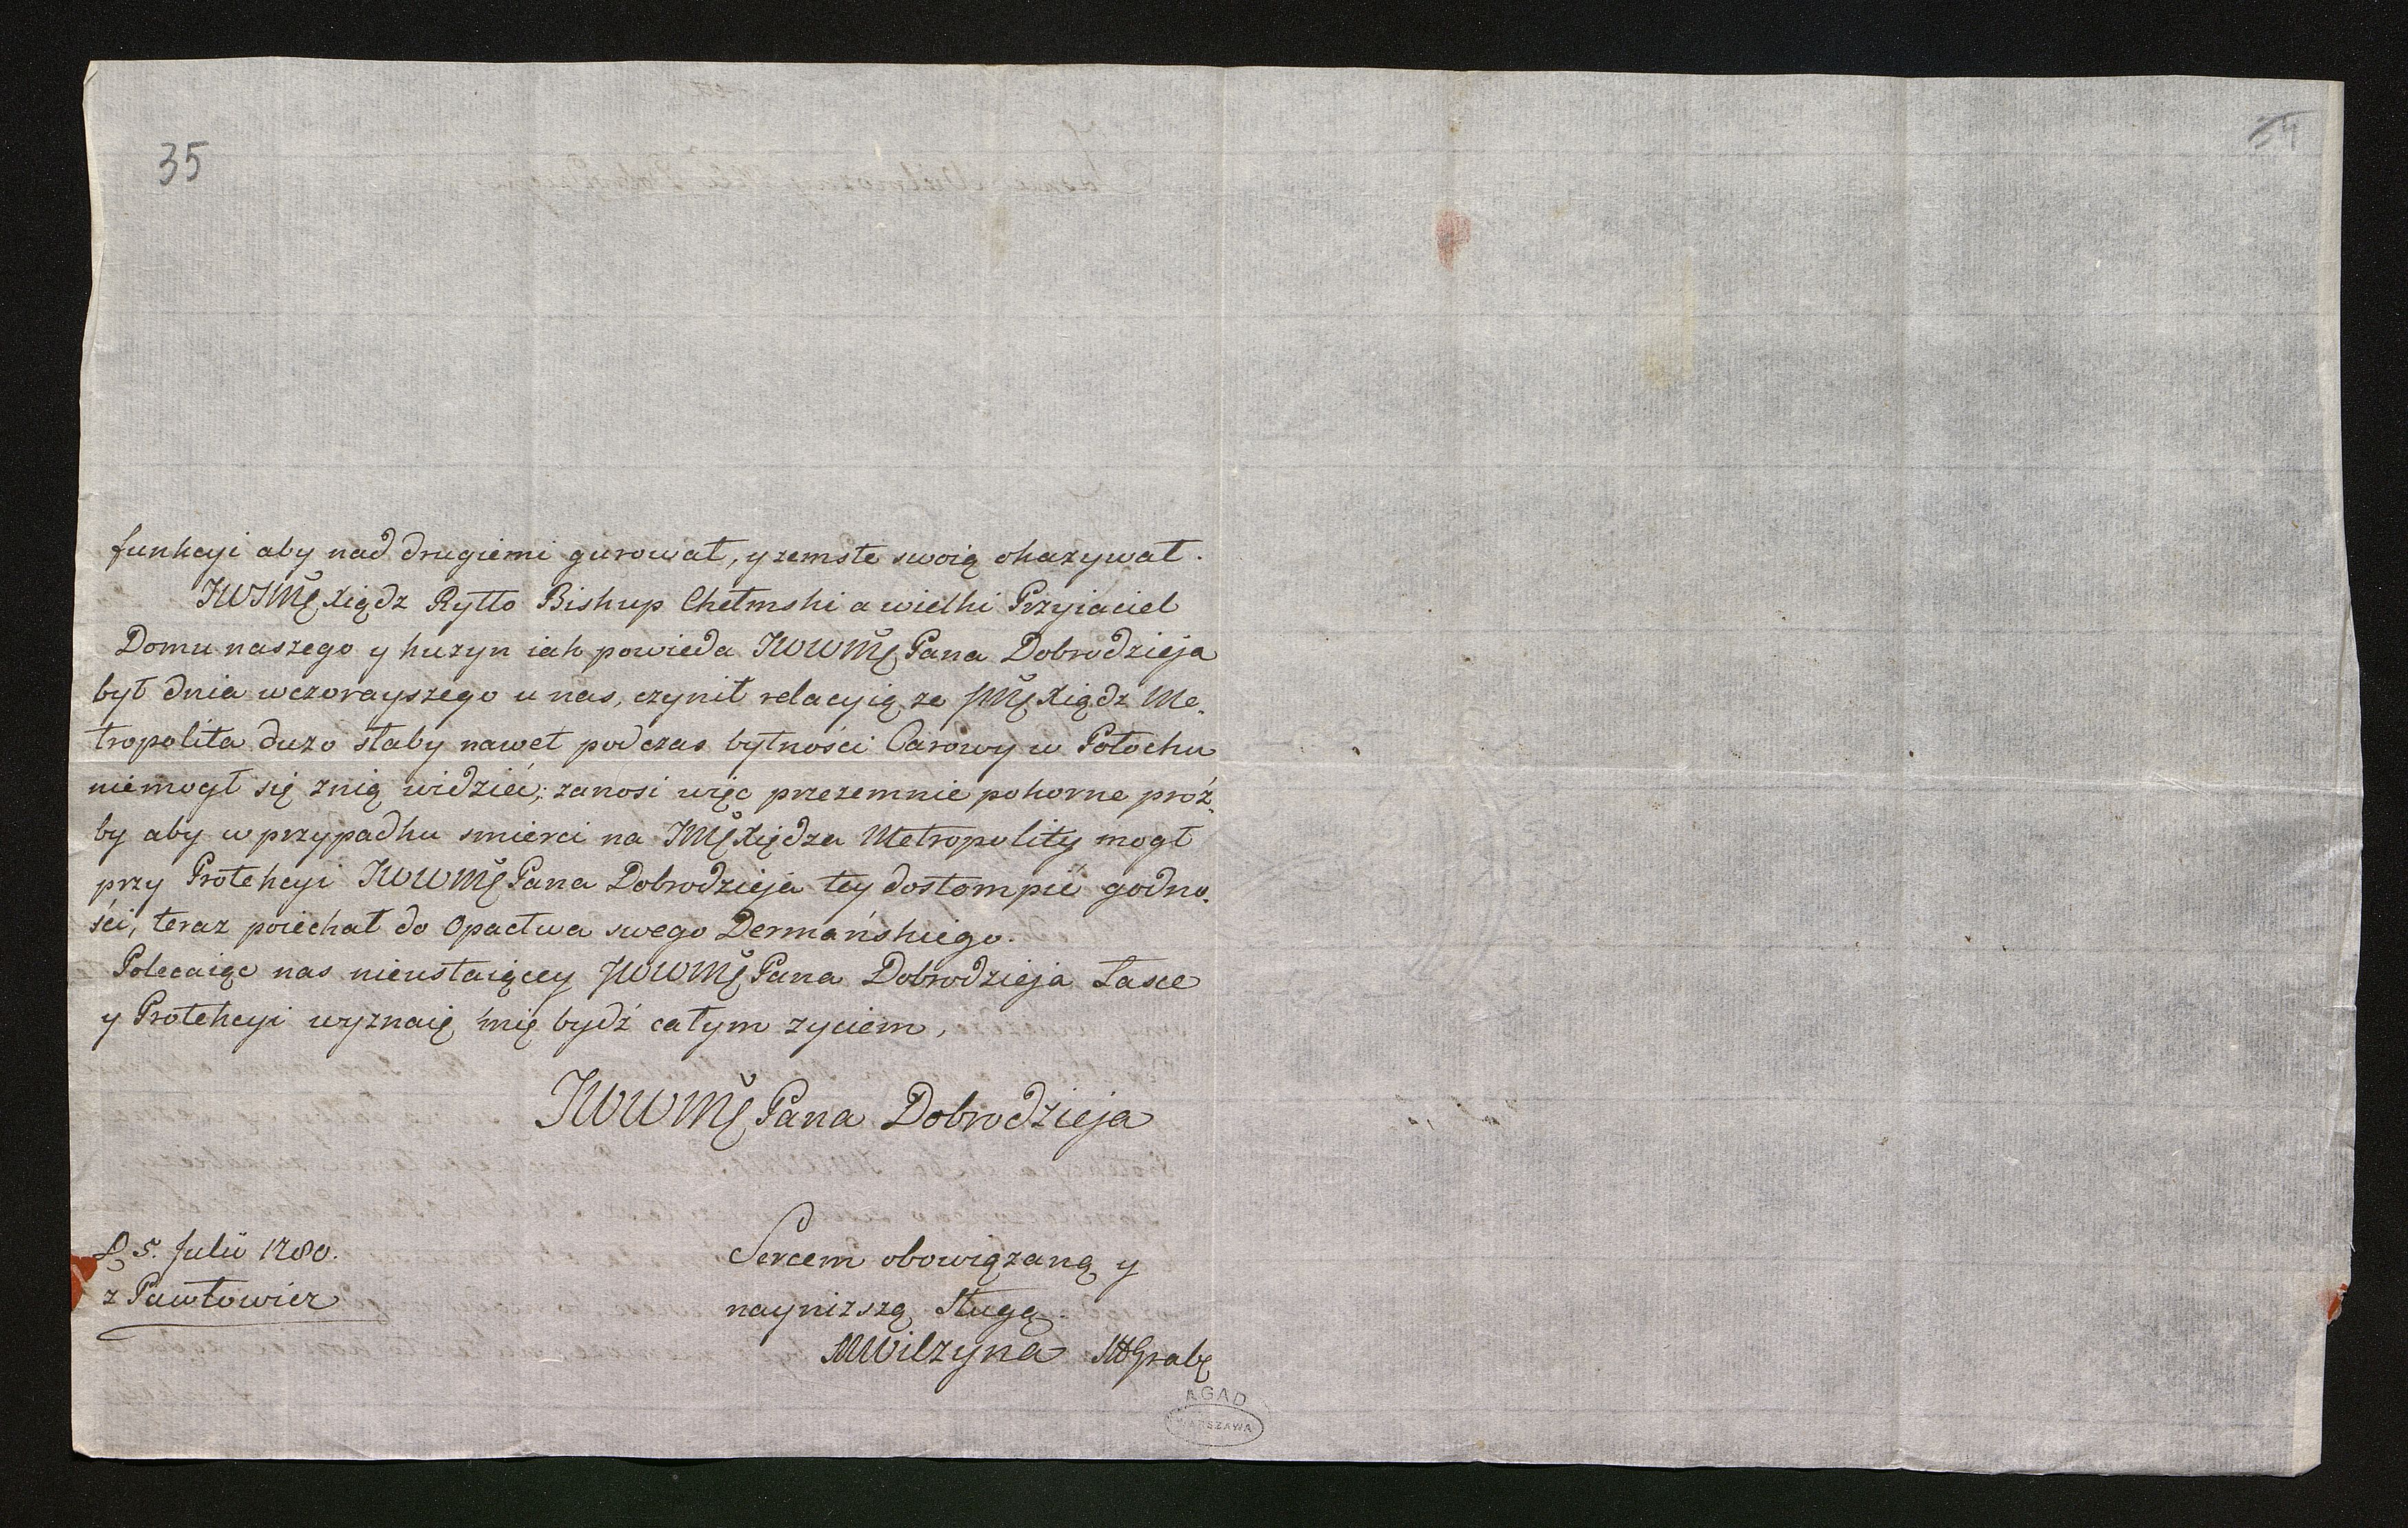 35
54
funkcyi aby nad drugiemi gurował, y zemste swoią okazywał.
JWJMC Xiądz Ryłło Biskup Chełmski a wielki Przyiaciel
Domu naszego y kuzyn iak powieda JWWMC Pana Dobrodzieja
był dnia wczorayszego u nas, czynił relacyią ze JMC Xiądz Me„
tropolita duzo słaby nawet podczas bytności Carowy w Połocku
niemogł się znią widzieć; zanosi więc przezemnie pokorne proź„
by aby w przypadku smierci na JMC Xiędza Metropolity mogł
przy Protekcyi JWWMC Pana Dobrodzieja tey dostompić godno„
ści, teraz poiechał do Opactwa swego Dermańskiego.
Polecaiąc nas nieustaiącey JWWMC Pana Dobrodzieja Łasce
y Protekcyi wyznaię mię bydź całym zyciem,
JWWMC Pana Dobrodzieja
D 5. Julii 1780.
z Pawłowicz
Sercem obowiązaną y
naynizszą Sługą.
MWilzyna
AGAD
WARSZAWA